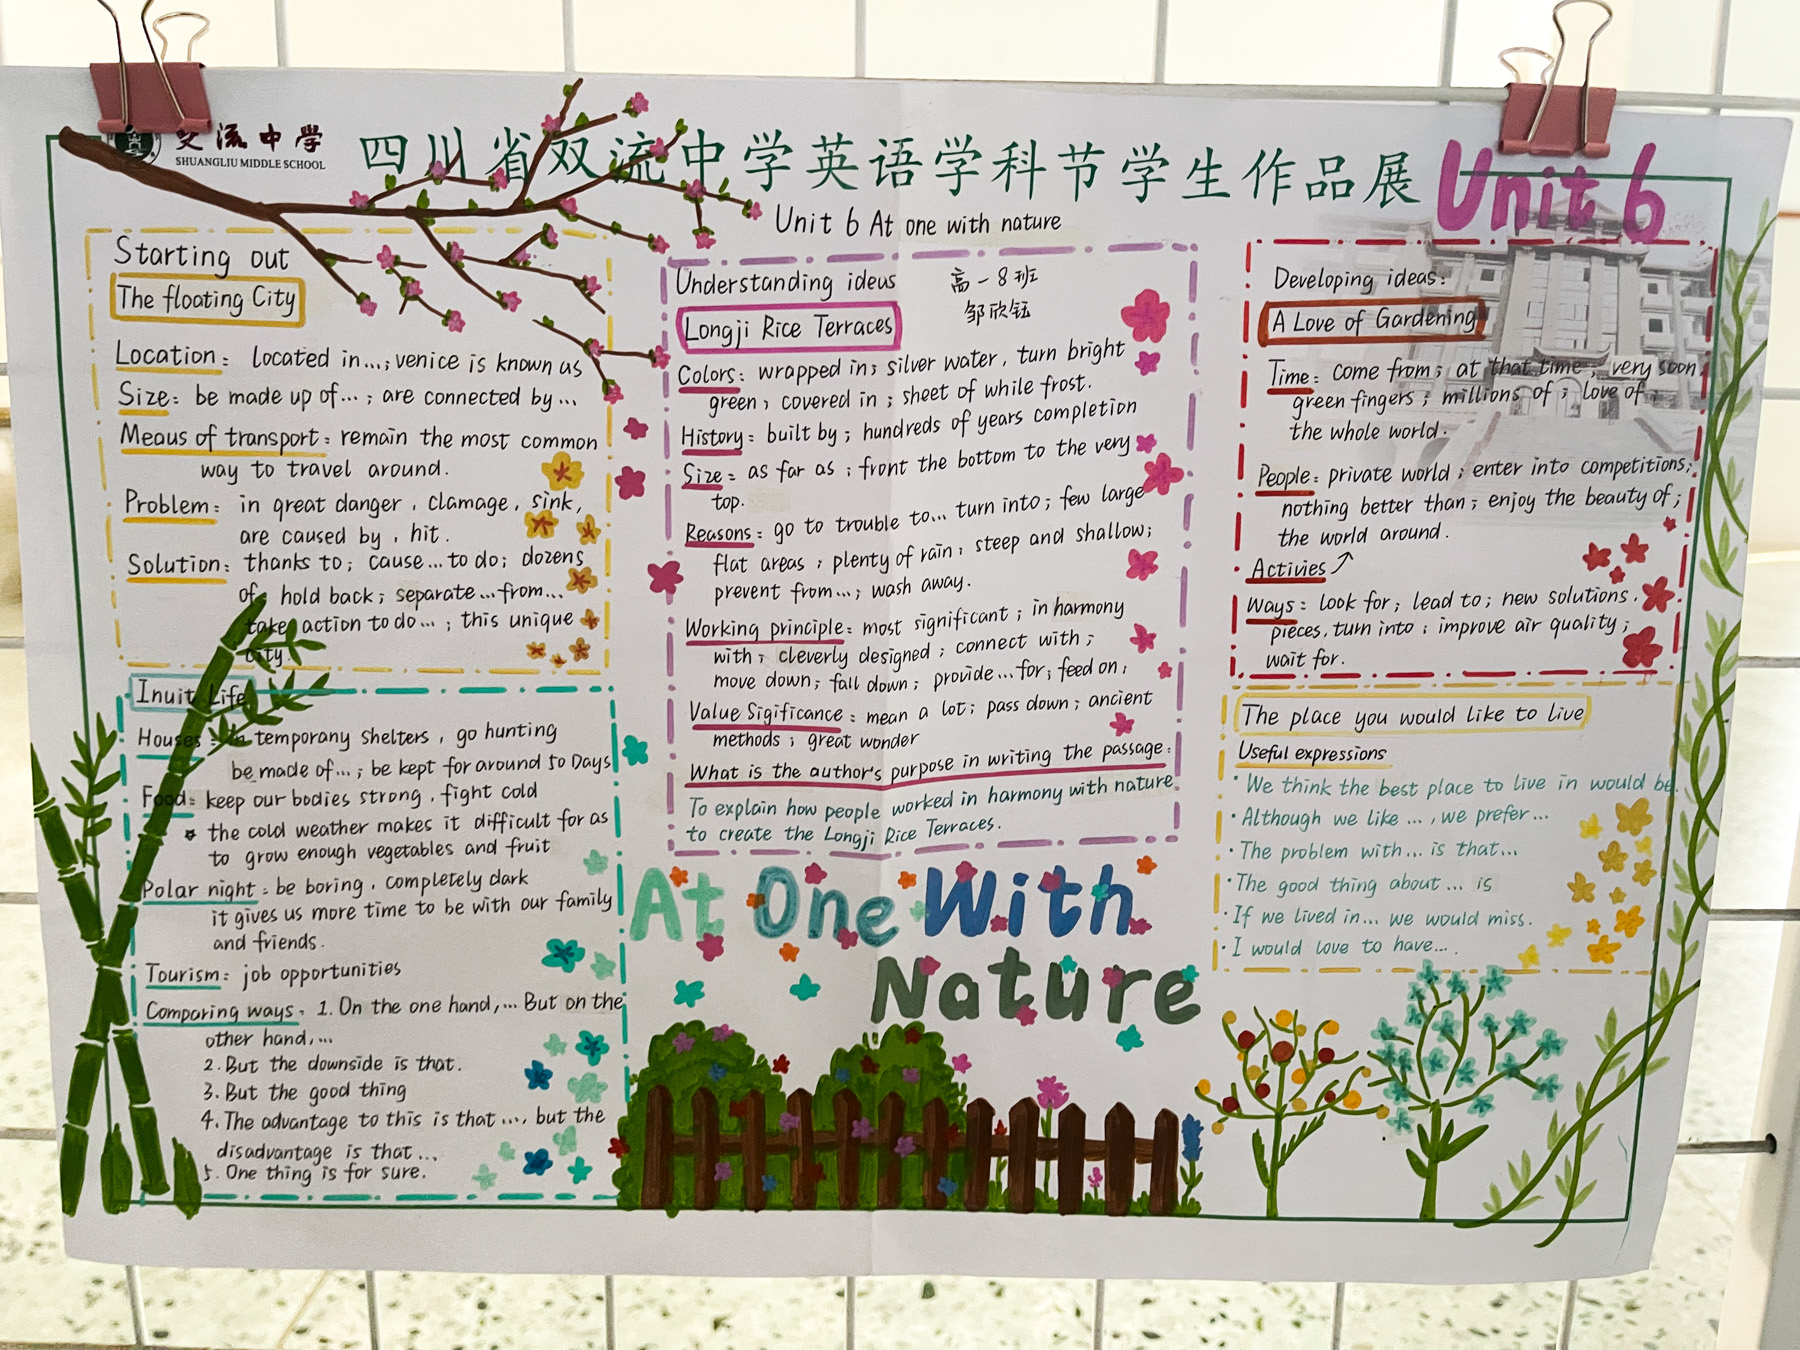 双流中学
SHUANGLIU MIDDLE SCHOOL
四川省双流中学英语学科节学生作品展
Unit 6
Unit 6 At one with nature
Starting out
The floating City
Location: located in...; venice is known us
Size: be made up of...; are connected by...
Meaus of transport: remain the most common
way to travel around.
Problem: in great danger, clamage, sink,
are caused by, hit.
Solution: thanks to; cause...to do; dozens
of; hold back; separate...from...
take action to do...; this unique
city.
Inuit Life
Houses: in temporany shelters, go hunting
be made of...; be kept for around 50 Days
Food: keep our bodies strong, fight cold
the cold weather makes it difficult for as
to grow enough vegetables and fruit
Polar night: be boring, completely dark
it gives us more time to be with our family
and friends.
Tourism: job opportunities
Comparing ways. 1. On the one hand,... But on the
other hand,...
2. But the downside is that.
3. But the good thing
4. The advantage to this is that..., but the
disadvantage is that...
5. One thing is for sure.
Understanding ideas
高一8班
邹欣钰
Longji Rice Terraces
Colors: wrapped in; silver water, turn bright
green, covered in; sheet of while frost.
History: built by; hundreds of years completion
Size: as far as; front the bottom to the very
top.
Reasons: go to trouble to... turn into; few large
flat areas; plenty of rain; steep and shallow;
prevent from...; wash away.
Working principle: most significant; in harmony
with; cleverly designed; connect with;
move down; fall down; provide...for; feed on;
Value Sigificance: mean a lot; pass down; ancient
methods; great wonder
What is the author's purpose in writing the passage:
To explain how people worked in harmony with nature
to create the Longji Rice Terraces.
At One With
Nature
Developing ideas:
A Love of Gardening
Time: come from; at that time; very soon,
green fingers; millions of; love of;
the whole world.
People: private world; enter into competitions;
nothing better than; enjoy the beauty of;
the world around.
Activies
Ways: look for; lead to; new solutions.
pieces, turn into; improve air quality;
wait for.
The place you would like to live
Useful expressions
·We think the best place to live in would be
·Although we like ..., we prefer...
·The problem with... is that...
·The good thing about ... is
·If we lived in... we would miss.
·I would love to have...